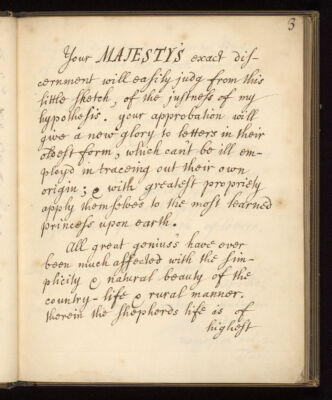 3
Your MAJESTYS exact dis-
cernment will easily judg from this
little sketch, of the justness of my
hypothesis. your approbation will
give a new glory to letters in their
oldest form, which cant be ill em-
ployd in traceing out their own
origin; & with greatest propriety
apply themselves to the most learned
princess upon earth.
All great genius's have ever
been much affected with the sim-
plicity & natural beauty of the
country-life & rural manner.
therein the shepherds life is of
highest